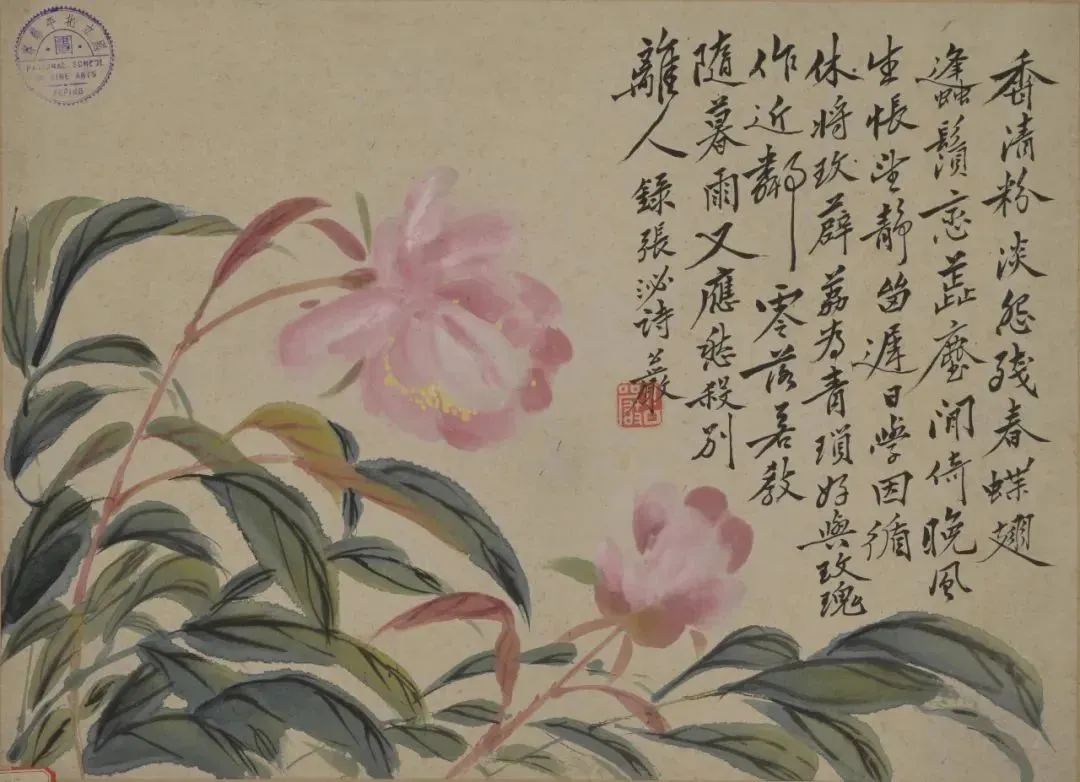 國立北平藝專
NATIONAL SCHOOL
OF FINE ARTS
PEIPING
香清粉淡怨残春蝶翅
蜂鬚恋蕋塵閒倚晚風
生悵望靜留遲日學因循
休將玫薜荔為青瑣好與玫瑰
作近鄰零落若教
隨暮雨又應愁殺別
離人 錄張泌詩 嚴